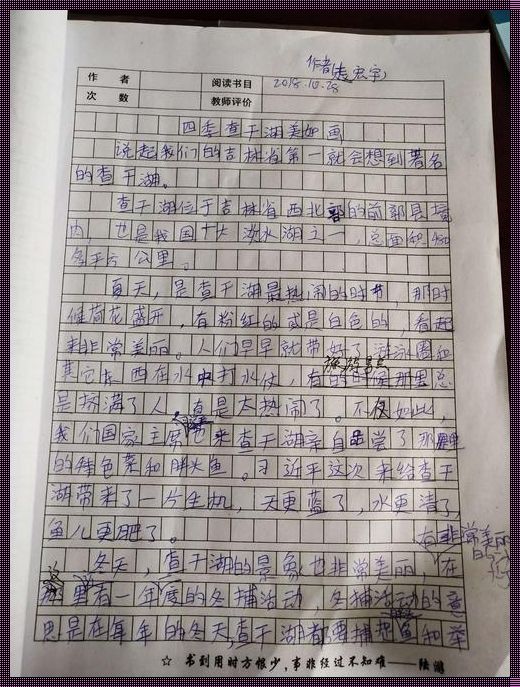 作者(走宏宇)
作 者 阅读书目 2018.10.28
次 数 教师评价
四季查干湖美如画
说起我们的吉林省第一就会想到著名
的查干湖。
查干湖位于吉林省西北部的前郭县境
内,也是我国十大淡水湖之一,总面积
多平方公里。
夏天,是查干湖最热闹的时节,那时
候荷花盛开,有粉红的或是白色的,看起
来非常美丽。人们早早就带好了游泳圈和
其它东西在水中打水仗,有的时候那里总
是挤满了人,真是太热闹了。不仅如此,
我们国家主席也来查干湖亲自品尝了那里
的特色菜和胖头鱼。习近平这次来给查干
湖带来了一片生机,天更蓝了,水更清了,
鱼儿更肥了。
有非常美丽的
冬天,查干湖的景象也非常美丽,在
那里有一年一度的冬捕活动,冬捕活动的意
思是在每年的冬天,查干湖都要捕捞鱼和举
☆ 书到用时方恨少,事非经过不知难——陆游